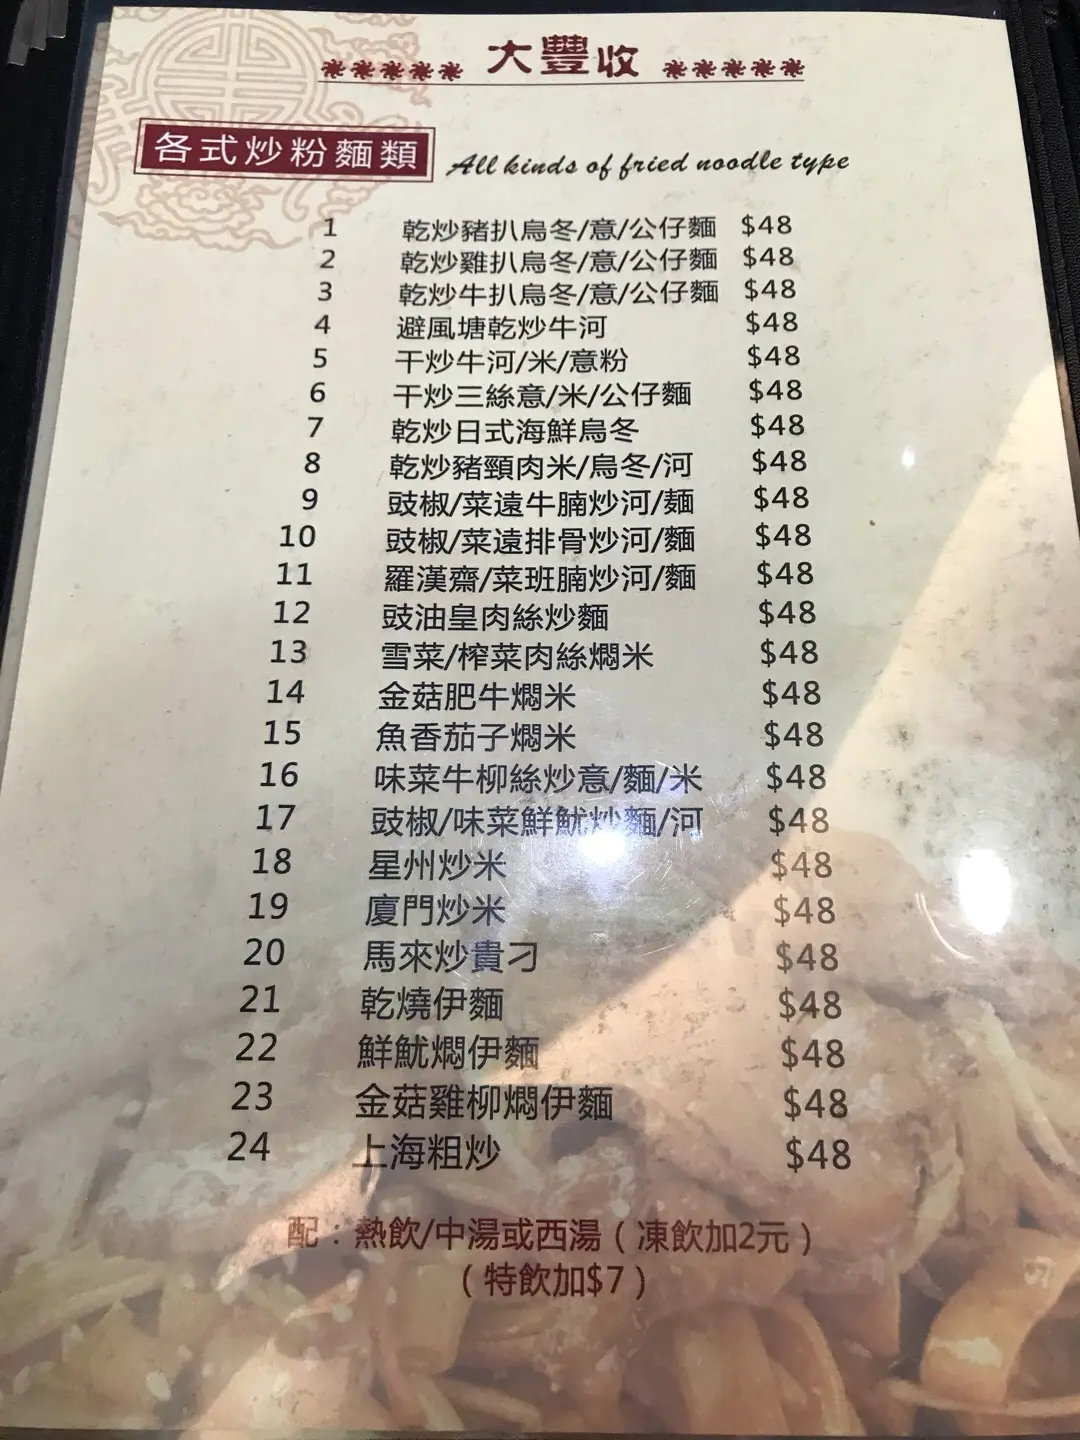 大豐收
各式炒粉麵類 All kinds of fried noodle type
1 乾炒豬扒烏冬/意/公仔麵 $48
2 乾炒雞扒烏冬/意/公仔麵 $48
3 乾炒牛扒烏冬/意/公仔麵 $48
4 避風塘乾炒牛河 $48
5 干炒牛河/米/意粉 $48
6 干炒三絲意/米/公仔麵 $48
7 乾炒日式海鮮烏冬 $48
8 乾炒豬頸肉米/烏冬/河 $48
9 豉椒/菜遠牛腩炒河/麵 $48
10 豉椒/菜遠排骨炒河/麵 $48
11 羅漢齋/菜班腩炒河/麵 $48
12 豉油皇肉絲炒麵 $48
13 雪菜/榨菜肉絲燜米 $48
14 金菇肥牛燜米 $48
15 魚香茄子燜米 $48
16 味菜牛柳絲炒意/麵/米 $48
17 豉椒/味菜鮮魷炒麵/河 $48
18 星州炒米 $48
19 廈門炒米 $48
20 馬來炒貴刁 $48
21 乾燒伊麵 $48
22 鮮魷燜伊麵 $48
23 金菇雞柳燜伊麵 $48
24 上海粗炒 $48
配：熱飲/中湯或西湯（凍飲加2元）
（特飲加$7）